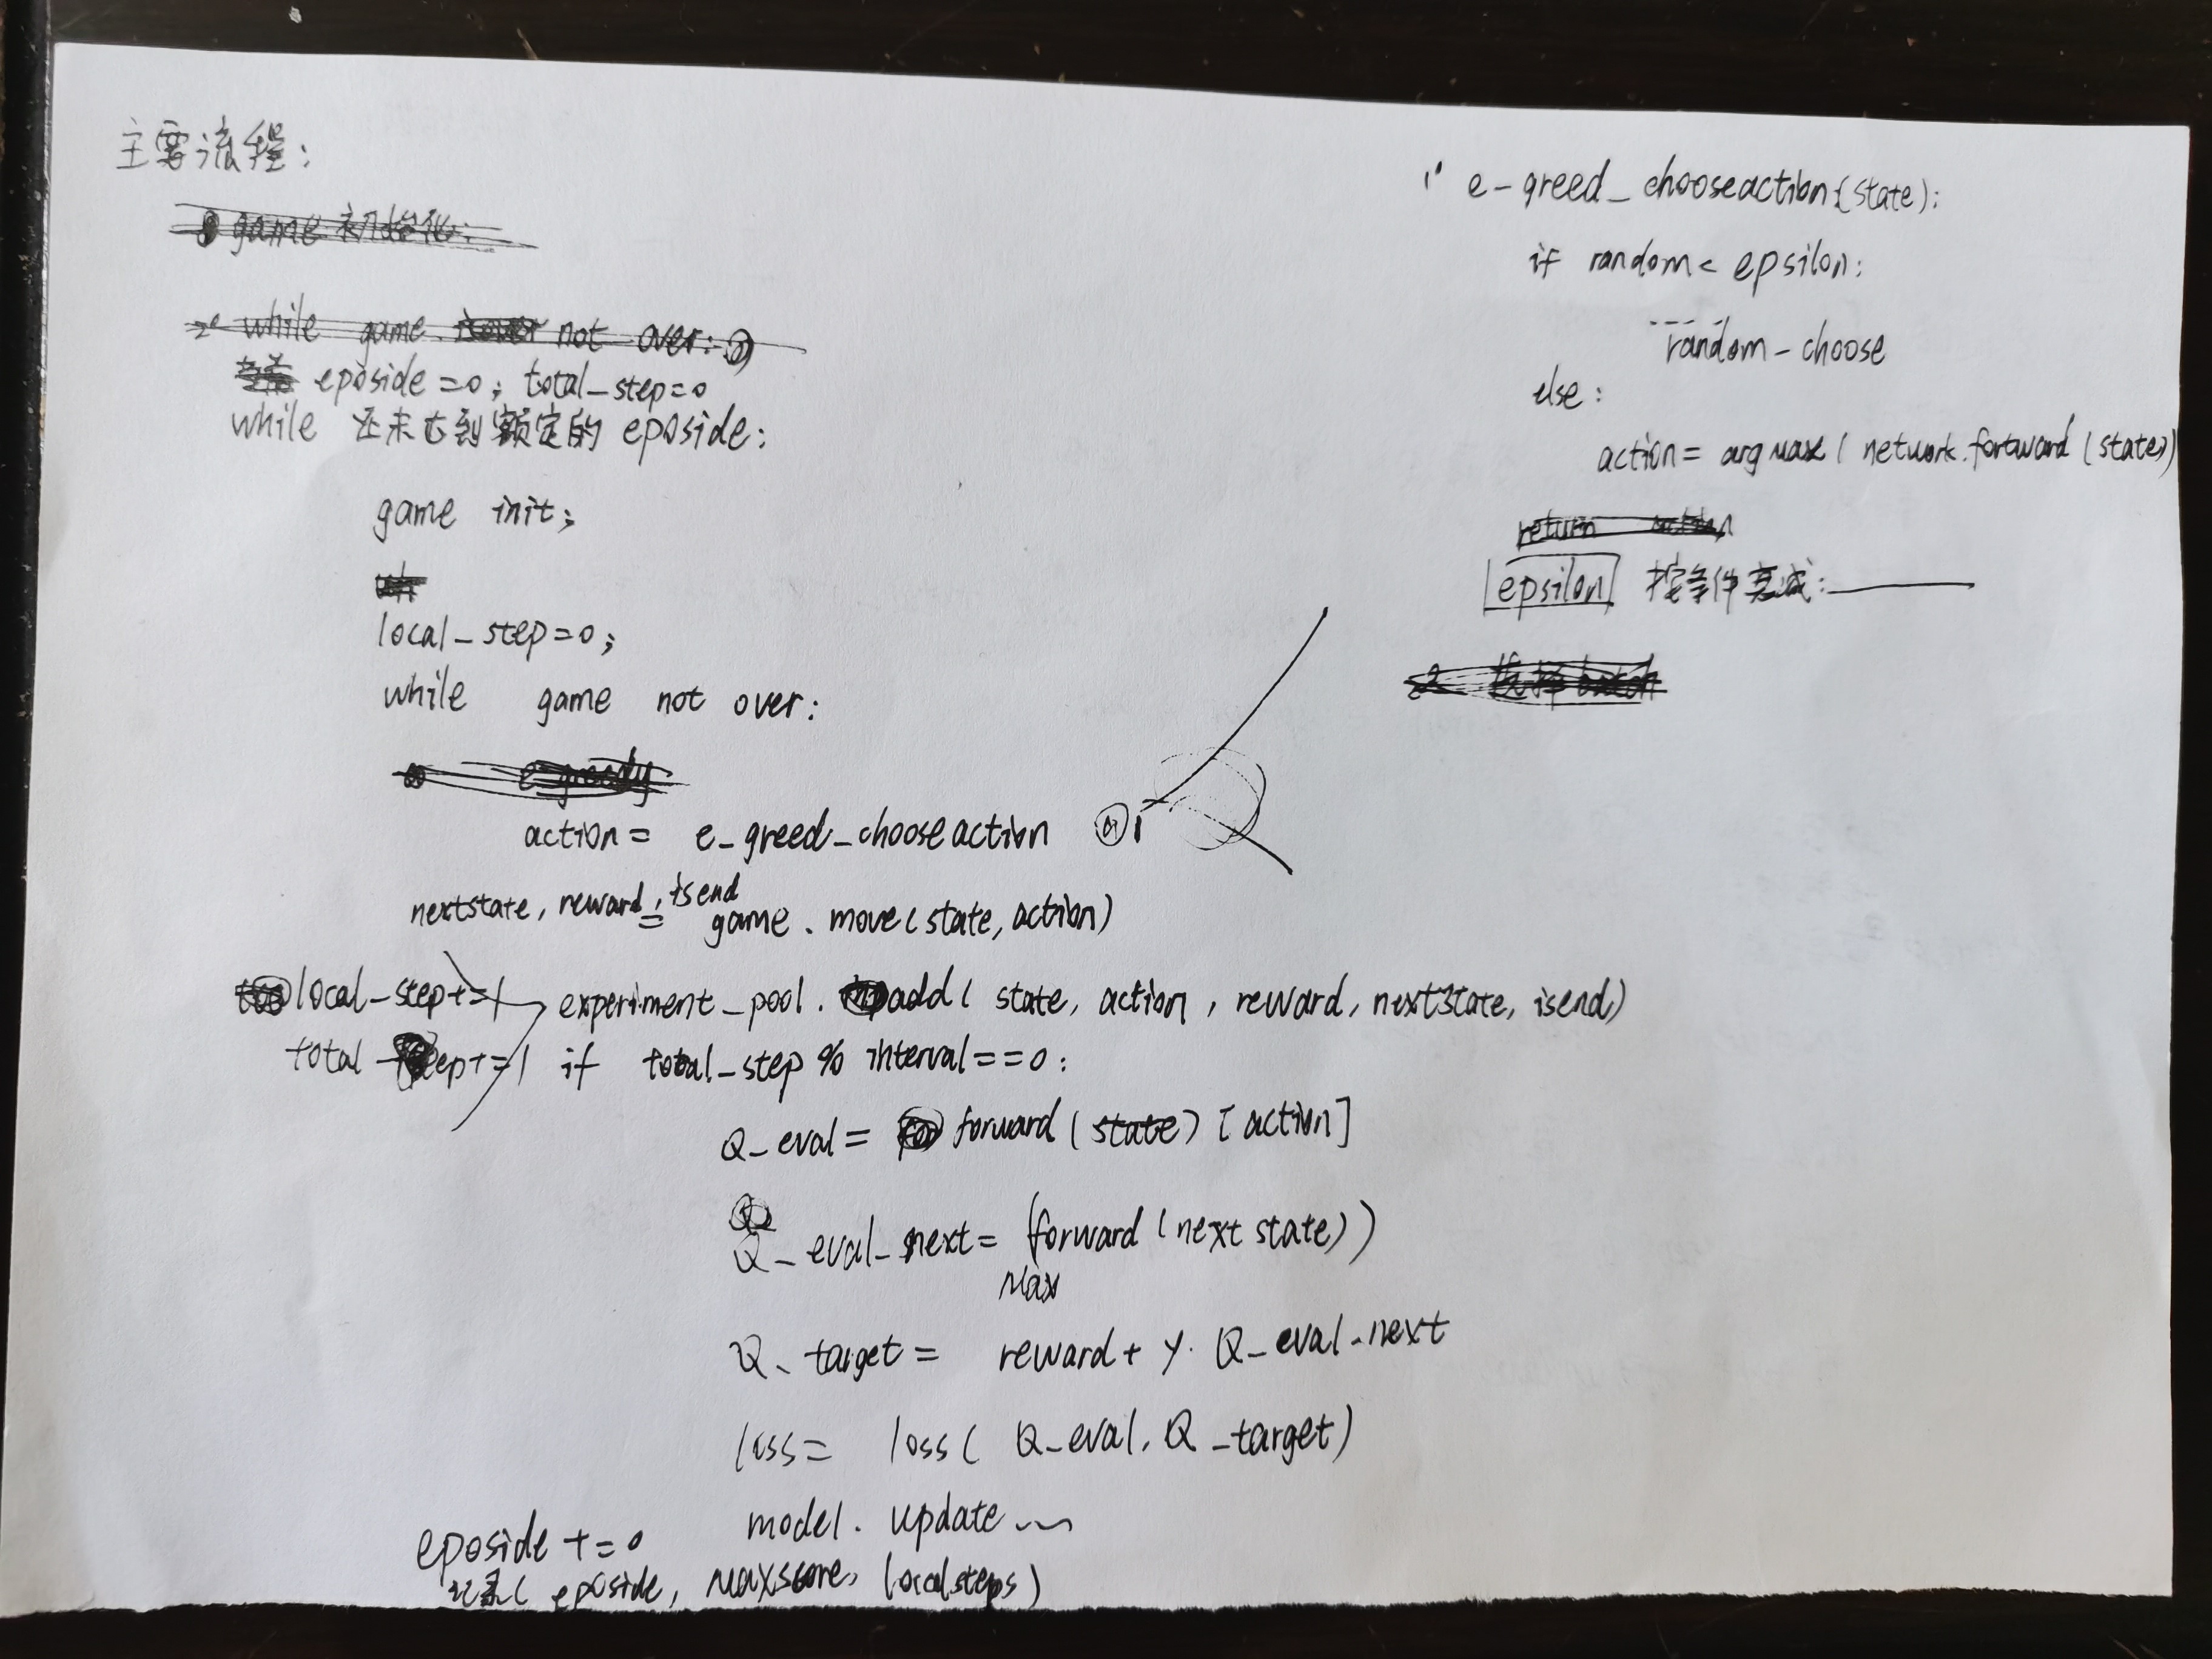 主要流程:
game 初始化:
2° while game. not over:
eposide =0; total_step=0
while 还未达到额定的 eposide:
game init;
local_step=0;
while game not over:
e-greedy
action = e_greed_choose action ① 1
nextstate, reward, isend = game . move(state, action)
local_step+=1 experiment_pool. add( state, action, reward, nextstate, isend)
total_step+=1 if total_step % interval==0:
Q_eval = forward (state) [action]
Q_eval_next= Max (forward (next state))
Q_target = reward + γ. Q_eval_next
loss= loss( Q_eval, Q_target)
model. update
eposide +=0
记录( eposide, Maxscore, localsteps)
1° e-greed_chooseaction(state):
if random < epsilon:
random-choose
else:
action= argMax( network.fortward (state))
return action
epsilon 按条件衰减: